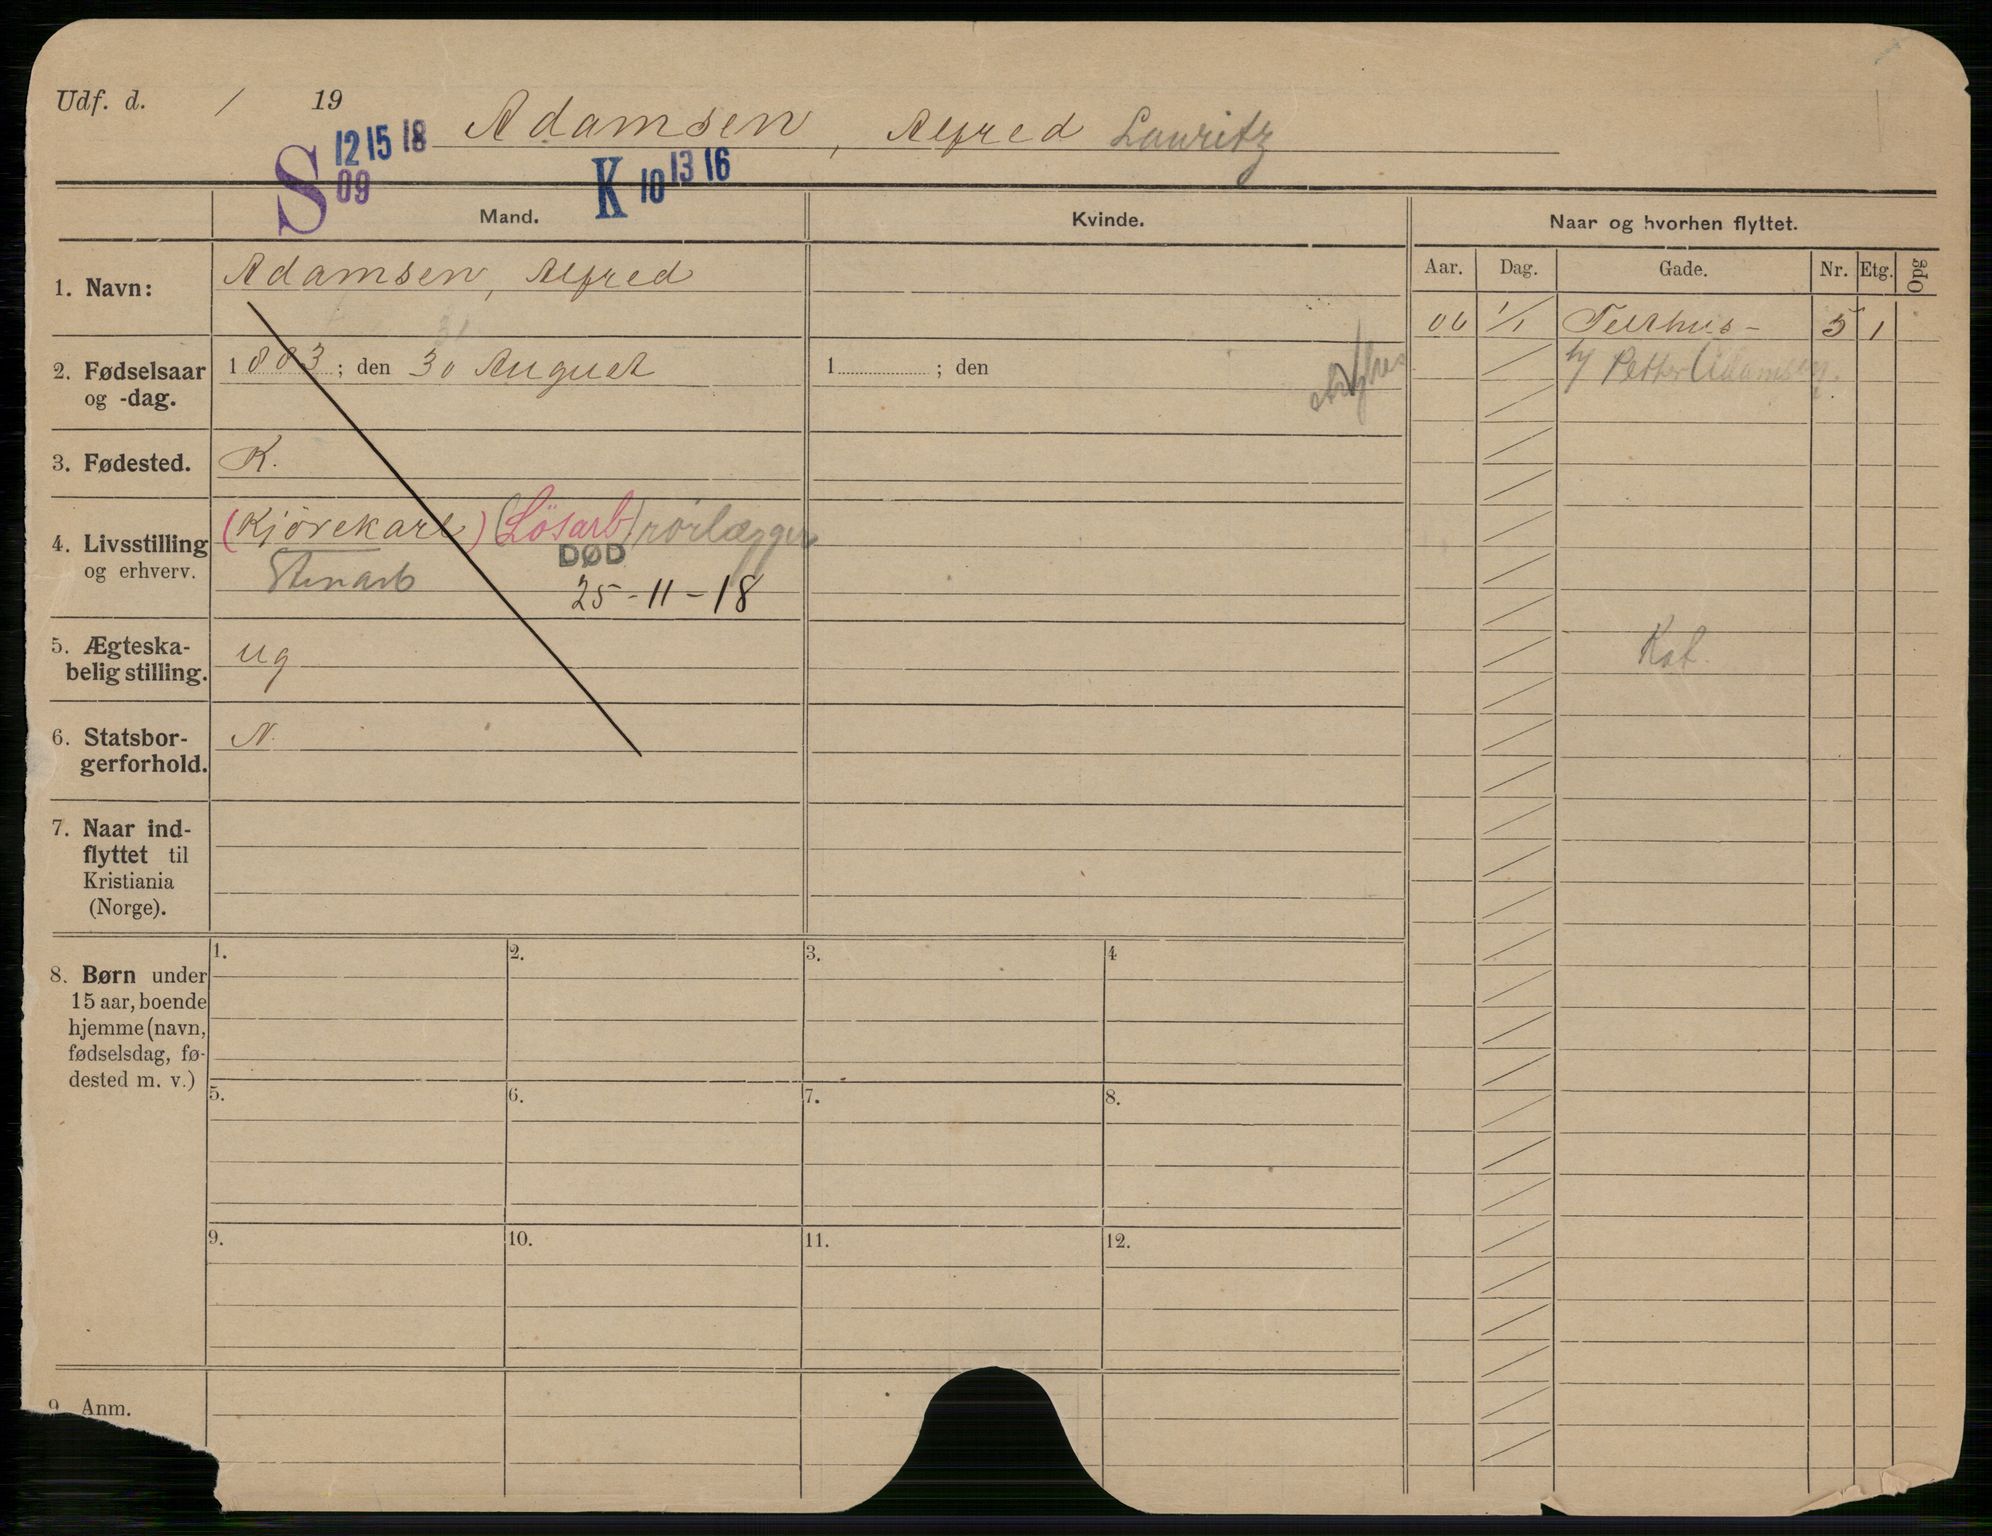 Udf. d. / 19
Adamsen, Alfred Lauritz
S 12 15 18
09
K 10 13 16
Mand.
Kvinde.
Naar og hvorhen flyttet.
Aar. Dag. Gade. Nr. Etg. Opg
1. Navn:
Adamsen, Alfred
06 1/1 Telthus- 5 1
h/ Petter Adamsen.
2. Fødselsaar
og -dag.
1883; den 30 August
31
1 ; den
3. Fødested.
K.
4. Livsstilling
og erhverv.
(Kjörekarl) (Lösarb) rörlægger
Stenarb
DØD
25-11-18
Kat.
5. Ægteska-
belig stilling.
ug
6. Statsbor-
gerforhold.
N.
7. Naar ind-
flyttet til
Kristiania
(Norge).
8. Børn under
15 aar, boende
hjemme (navn,
fødselsdag, fø-
dested m. v.)
1. 2. 3. 4
5. 6. 7. 8.
9. 10. 11. 12.
9. Anm.